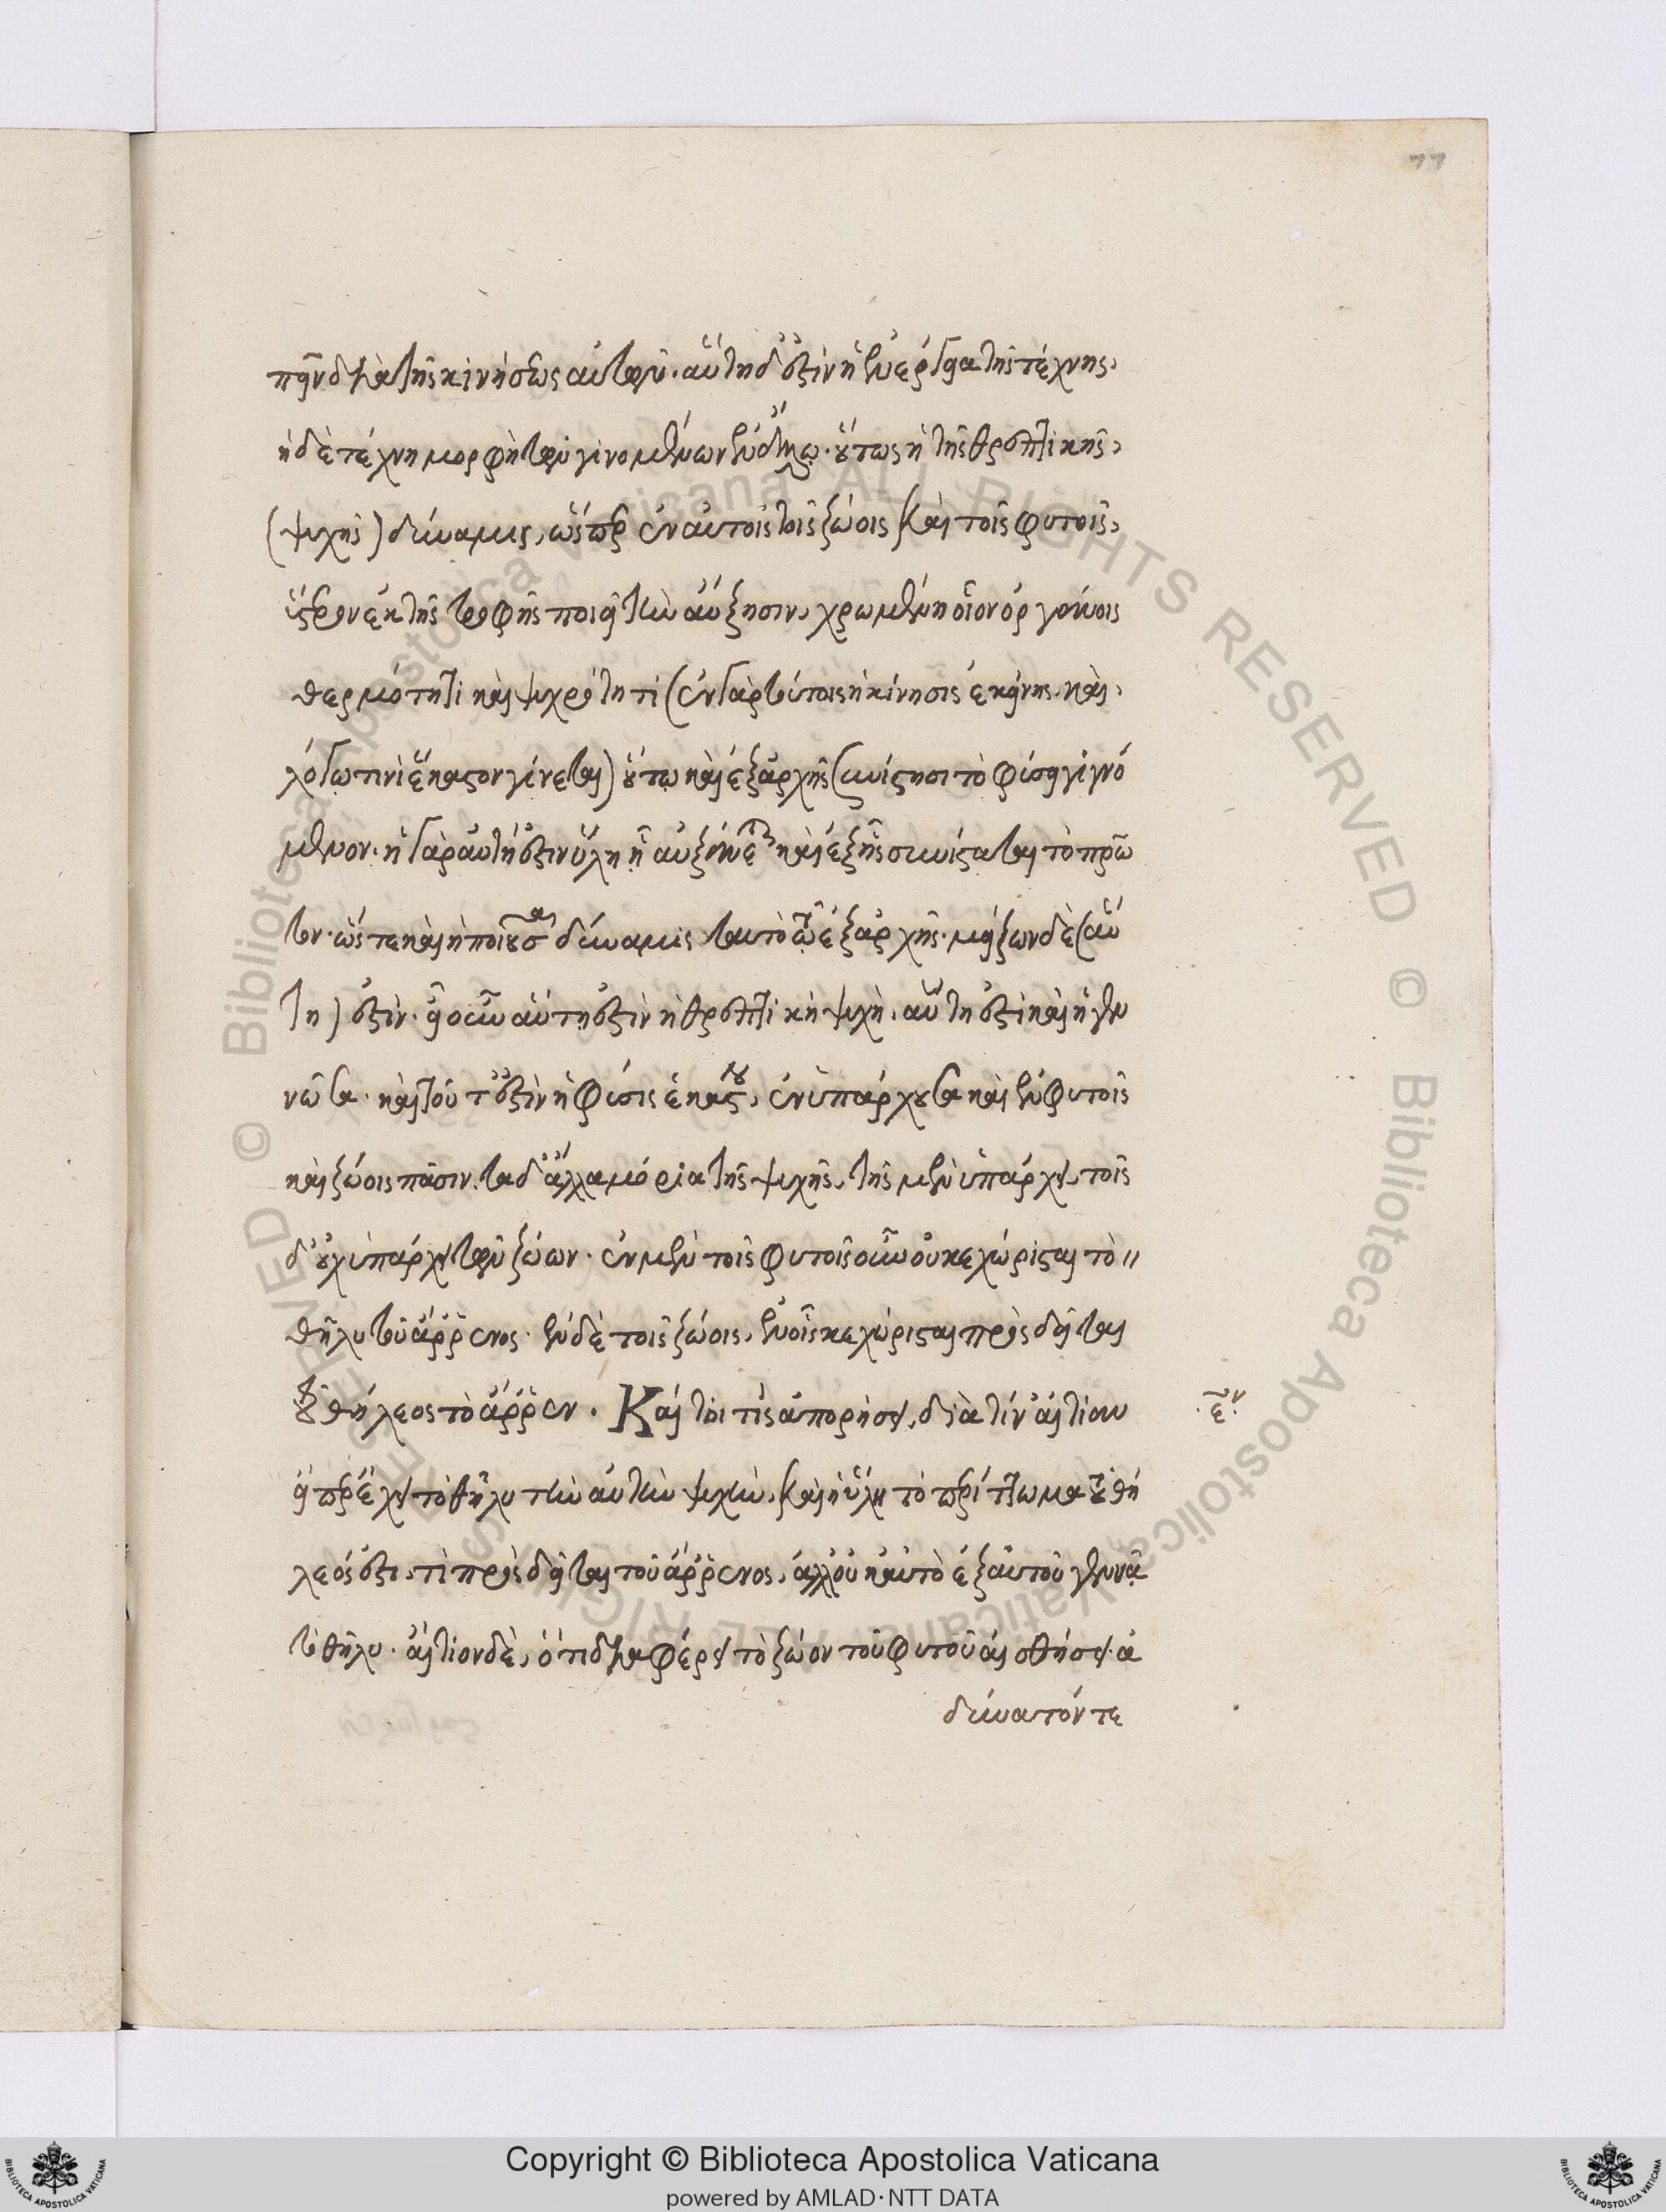 77
πεῖν διὰ τῆς κινήσεως αὐτῶν. αὕτη δ' ἐστὶν ἡ ἐνέργεια τῆς τέχνης,
ἡ δὲ τέχνη μορφὴ τῶν γινομένων ἐν ἄλλῳ. οὕτως ἡ τῆς θρεπτικῆς,
(ψυχῆς) δύναμις, ὥσπερ ἐν αὐτοῖς τοῖς ζώοις καὶ τοῖς φυτοῖς,
ὕστερον ἐκ τῆς τροφῆς ποιεῖ τὴν αὔξησιν, χρωμένη οἷον ὀργάνοις
θερμότητι καὶ ψυχρότητι (ἐν γὰρ τούτοις ἡ κίνησις ἐκείνης. καὶ,
λόγῳ τινὶ ἕκαστον γίνεται) οὕτω καὶ ἐξ ἀρχῆς συνίστησι τὸ φύσει γιγνό
μενον. ἡ γὰρ αὐτή ἐστιν ὕλη ᾗ αὐξάνεται καὶ ἐξ ἧς συνίσταται τὸ πρῶ
τον. ὥστε καὶ ἡ ποιοῦσα δύναμις ταὐτὸ τῷ ἐξ ἀρχῆς. μείζων δὲ (αὕ
τη) ἐστίν. εἰ οὖν αὕτη ἐστὶν ἡ θρεπτικὴ ψυχὴ, αὕτη ἐστὶ καὶ ἡ γεν
νῶσα. καὶ τοῦτ' ἐστὶν ἡ φύσις ἡ ἑκάστου, ἐνυπάρχουσα καὶ ἐν φυτοῖς
καὶ ζώοις πᾶσιν. τὰ δ' ἄλλα μόρια τῆς ψυχῆς, τοῖς μὲν ὑπάρχει, τοῖς
δ' οὐχ ὑπάρχει τῶν ζώων. ἐν μὲν τοῖς φυτοῖς οὖν οὐ κεχώρισται τὸ
θῆλυ τοῦ ἄῤῥενος. ἐν δὲ τοῖς ζώοις, ἐν οἷς κεχώρισται προσδεῖται
τοῦ θήλεος τὸ ἄῤῥεν. Καί τοι τις ἀπορήσει, διὰ τίν' αἰτίαν
εἴπερ ἔχει τὸ θῆλυ τὴν αὐτὴν ψυχὴν, καὶ ἡ ὕλη τὸ περίττωμα τοῦ θή
λεός ἐστι, τί προσδεῖται τοῦ ἄῤῥενος, ἀλλ' οὐκ αὐτὸ ἐξ αὑτοῦ γεννᾷ
τὸ θῆλυ. αἴτιον δὲ, ὅτι διαφέρει τὸ ζῶον τοῦ φυτοῦ αἰσθήσει. ἀ
δύνατόν τε